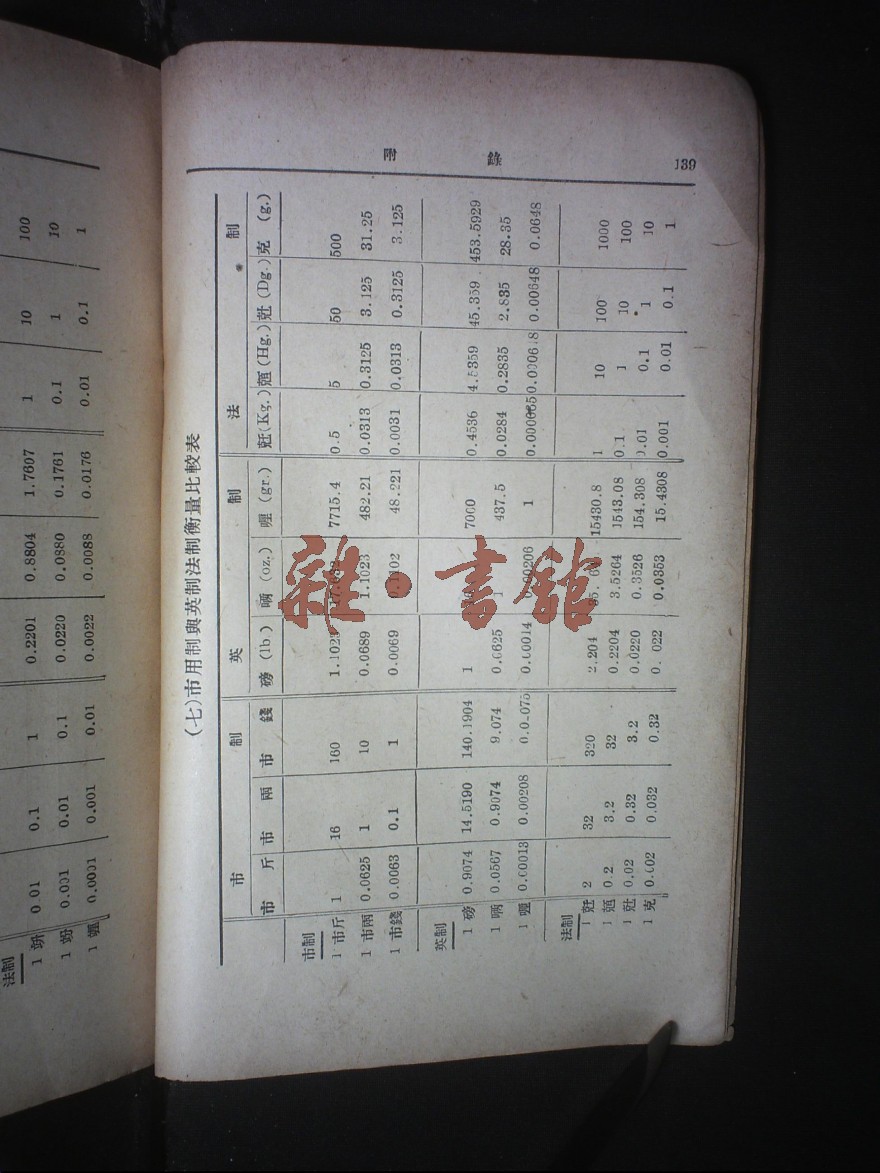 附 錄 139
(七)市用制與英制法制衡量比較表
市 制 英 制 法 制
市 斤 市 兩 市 錢 磅 (lb.) 啢 (oz.) 喱 (gr.) 兛 (Kg.) 兝 (Hg.) 兛 (Dg.) 克 (g.)
市制
1 市斤 1 16 160 1.1023 7715.4 0.5 5 50 500
1 市兩 0.0625 1 10 0.0689 1.1023 482.21 0.0313 0.3125 3.125 31.25
1 市錢 0.0063 0.1 1 0.0069 48.221 0.0031 0.0313 0.3125 3.125
英制
1 磅 0.9074 14.5190 140.1904 1 7000 0.4536 4.5359 45.359 453.5929
1 啢 0.0567 0.9074 9.074 0.0625 1 437.5 0.0284 0.2835 2.835 28.35
1 喱 0.00013 0.00208 0.00014 1 0.00648 0.0648
法制
2 32 320 2.204 15430.8 1 10 100 1000
0.2 3.2 32 0.2204 3.5264 1543.08 0.1 1 10 100
0.02 0.32 3.2 0.0220 0.3526 154.308 0.1 1 10
1 克 0.002 0.032 0.32 0.0353 15.4308 0.001 0.01 0.1 1
法制
0.01 0.1 1 0.2201 0.8804 1.7607 1 10 100
0.001 0.01 0.1 0.0220 0.0880 0.1761 0.1 1 10
0.0001 0.001 0.01 0.0022 0.0088 0.0176 0.01 0.1 1
雜·書館